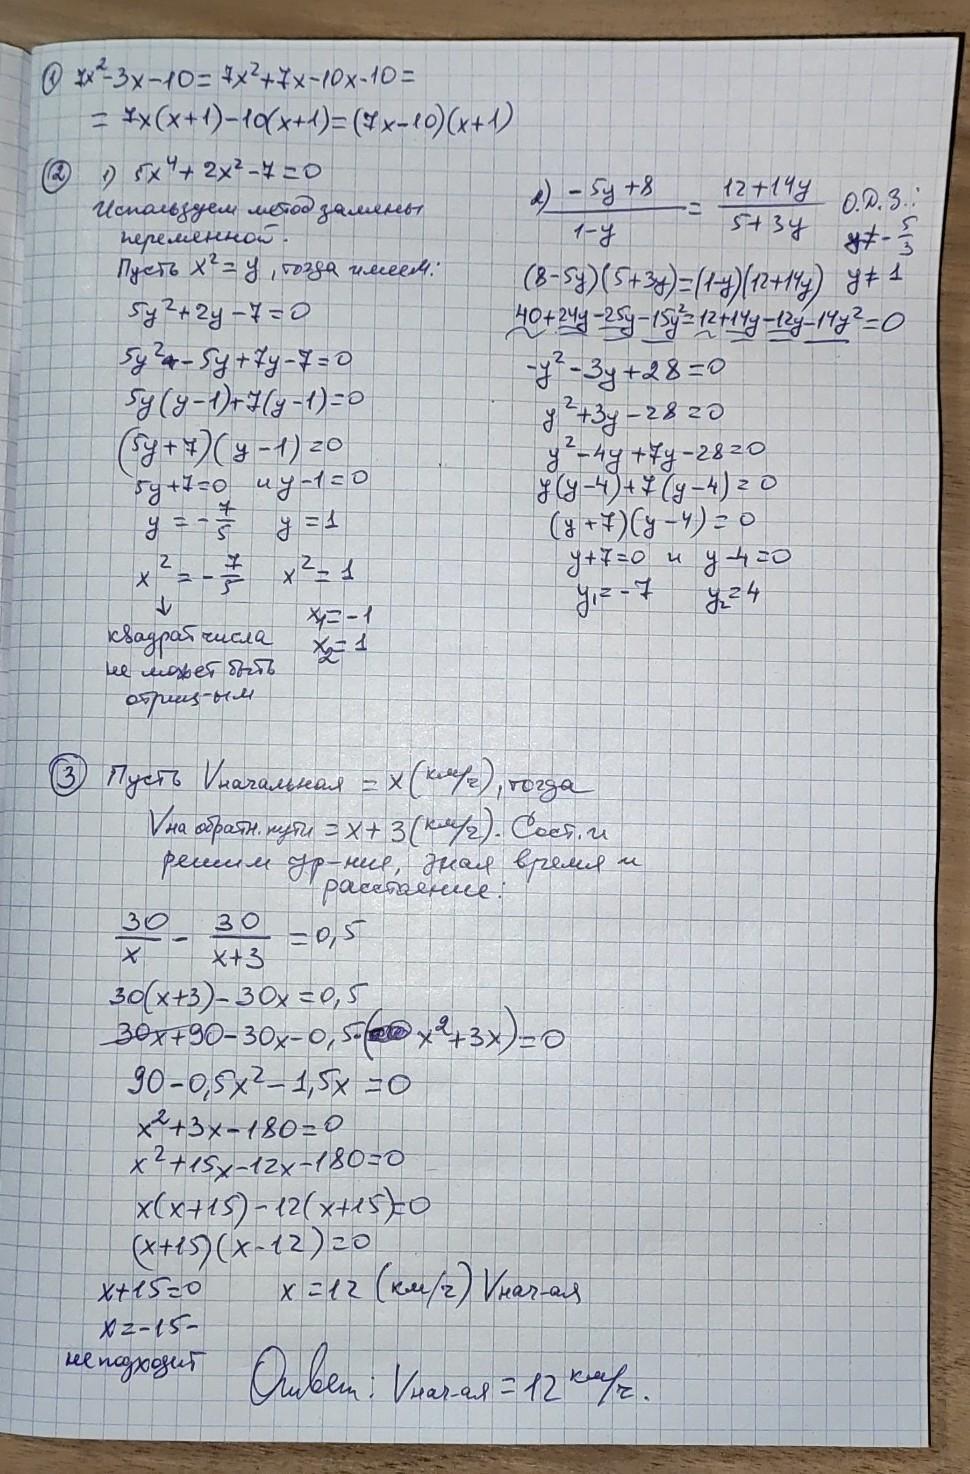 ① 7x²-3x-10=7x²+7x-10x-10=
= 7x(x+1)-10(x+1)=(7x-10)(x+1)
② 1) 5x⁴+2x²-7=0
Используем метод замены
переменной.
Пусть x²=y, тогда имеем:
5y²+2y-7=0
5y²-5y+7y-7=0
5y(y-1)+7(y-1)=0
(5y+7)(y-1)=0
5y+7=0 и y-1=0
y=-7/5 y=1
x²=-7/5 x²=1
↓ x₁=-1
x₂=1
квадрат числа
не может быть
отриц-ым
2) (-5y+8)/(1-y) = (12+14y)/(5+3y) О.Д.З.:
y≠-5/3
y≠1
(8-5y)(5+3y)=(1-y)(12+14y)
40+24y-25y-15y²=12+14y-12y-14y²=0
-y²-3y+28=0
y²+3y-28=0
y²-4y+7y-28=0
y(y-4)+7(y-4)=0
(y+7)(y-4)=0
y+7=0 и y-4=0
y₁=-7 y₂=4
③ Пусть Vначальная = x(км/ч), тогда
Vна обратн. пути = x+3(км/ч). Сост. и
решим ур-ние, зная время и
расстаение:
30/x - 30/(x+3) = 0,5
30(x+3)-30x=0,5
30x+90-30x-0,5·(x²+3x)=0
90-0,5x²-1,5x=0
x²+3x-180=0
x²+15x-12x-180=0
x(x+15)-12(x+15)=0
(x+15)(x-12)=0
x+15=0 x=12 (км/ч) Vнач-ая
x=-15-
не подходит
Ответ: Vнач-ая = 12 км/ч.